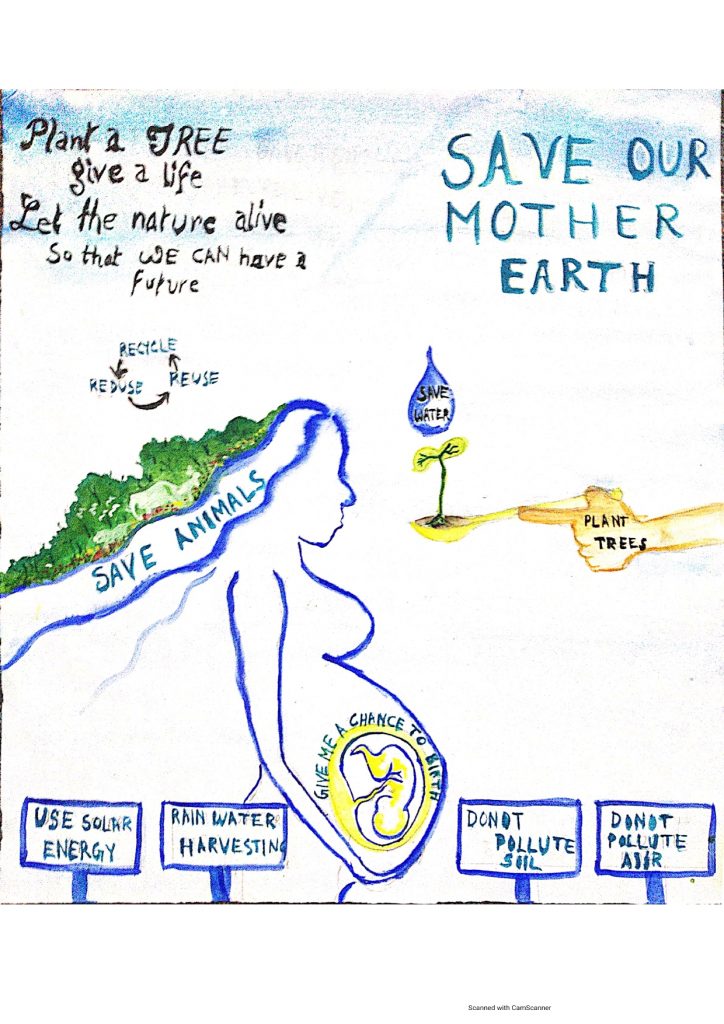 Plant a TREE
give a life
Let the nature alive
So that WE CAN have a
future
SAVE OUR
MOTHER
EARTH
RECYCLE
REDUSE REUSE
SAVE
WATER
PLANT
TREES
SAVE ANIMALS
GIVE ME A CHANCE TO BIRTH
USE SOLAR
ENERGY
RAIN WATER
HARVESTING
DONOT
POLLUTE
SOIL
DONOT
POLLUTE
AIR
Scanned with CamScanner